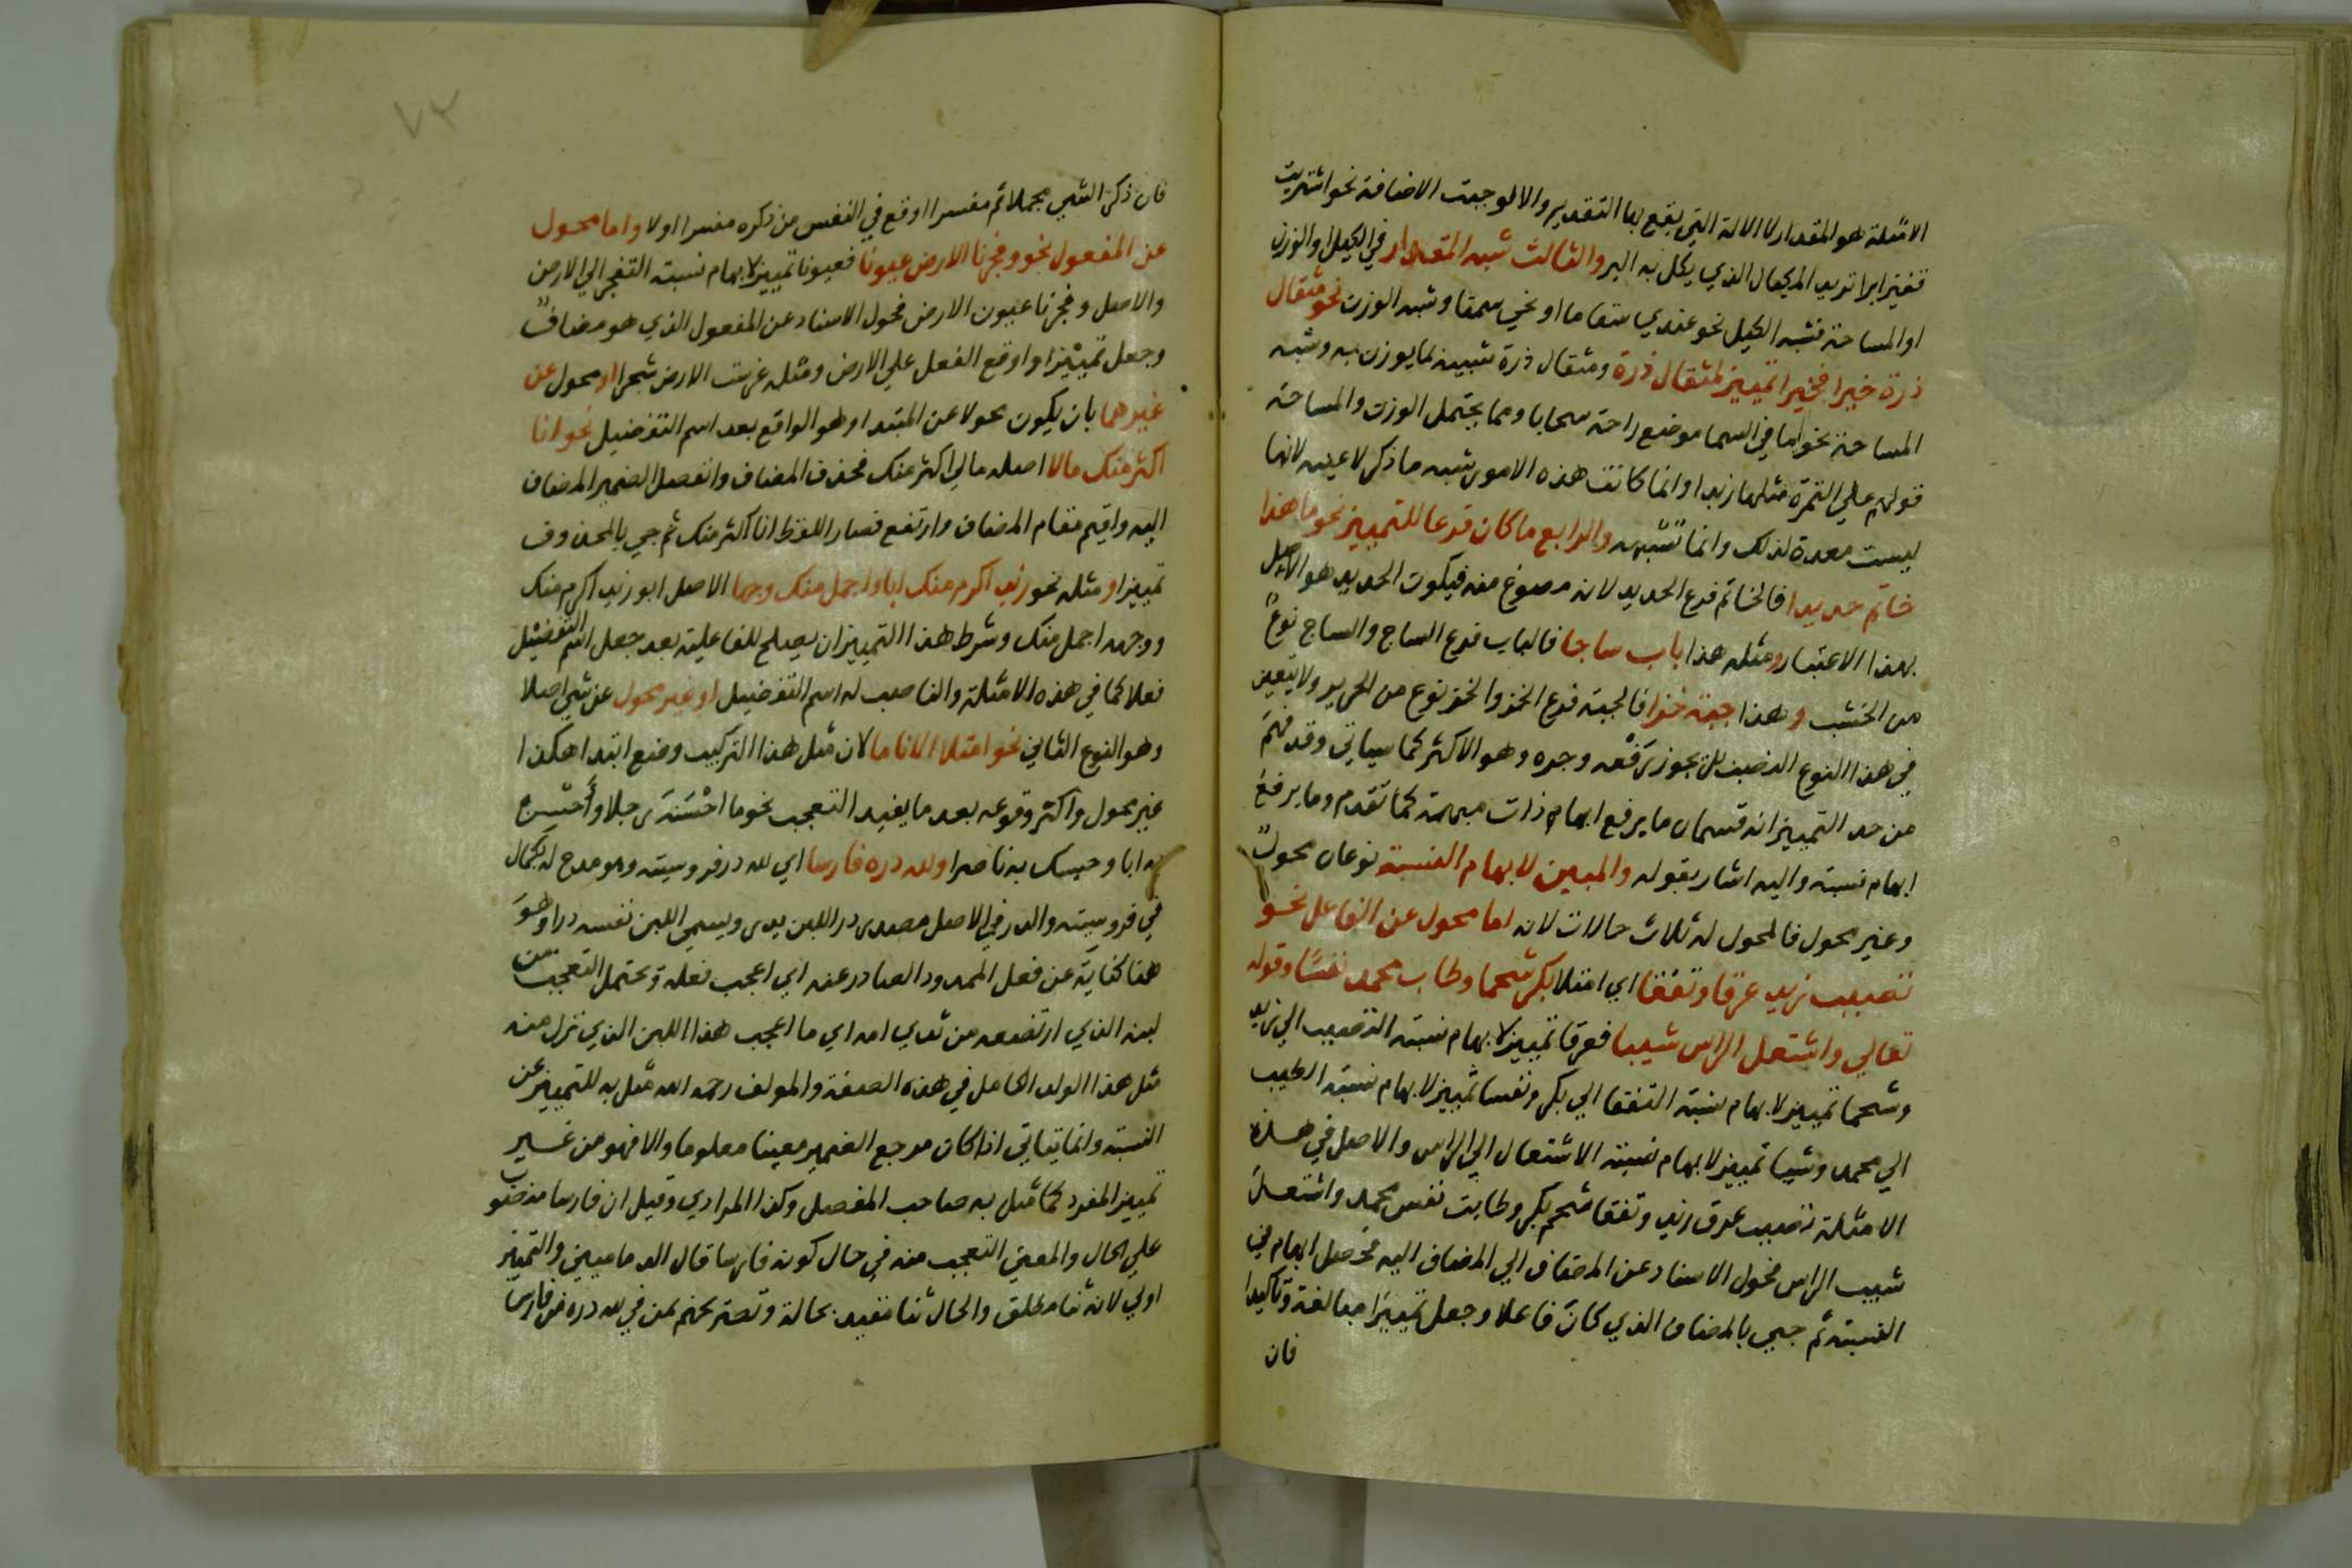 الامثلة هو المقدار لا الالة التي يقع بها التقدير والا لوجبت الاضافة نحو اشتريت
قفيز ابرا تريد المكيال الذي يكل به البر والثالث شبه المقدار في الكيل او الوزن
او المساحة فشبه الكيل نحو عندي سقاما او نحي سمنا وشبه الوزن نحو مثقال
ذرة خيرا فخيرا تمييز لمثقال ذرة ومثقال ذرة شبيه لما يوزن به وشبه
المساحة نحو ما في السما موضع راحة سحابا ومما يحتمل الوزن والمساحة
قولهم علي التمرة مثلها زبدا وانما كانت هذه الامور شبه ما ذكر لا عينه لانها
ليست معدة لذلك وانما تشبهه والرابع ما كان فرعا للتمييز نحو هذا
خاتم حديدا فالخاتم فرع الحديد لانه مصوغ منه فيكون الحديد هو الاصل
بهذا الاعتبار ومثله هذا باب ساجا فالباب فرع الساج والساج نوع
من الخشب وهذا جبة خزا فالجبة فرع الخز والخز نوع من الحرير ولا يتعين
في هذا النوع النصب بل يجوز رفعه وجره وهو الاكثر كما سياتي وقد فهم
من حد التمييز انه قسمان ما يرفع ابهام ذات مبهمة كما تقدم وما يرفع
ابهام نسبة واليه اشار بقوله والمبين لابهام النسبة نوعان محول
وغير محول فالمحول له ثلاث حالات لانه اما محول عن الفاعل نحو
تصبب زيد عرقا وتفقا اي امتلا بكر شحما وطاب محمد نفسا وقوله
تعالي واشتعل الراس شيبا فعرقا تمييز لابهام نسبة التصبب الي زيد
وشحما تمييز لابهام نسبة التفقا الي بكر ونفسا تمييز لابهام نسبة الطيب
الي محمد وشيبا تمييز لابهام نسبة الاشتعال الي الراس والاصل في هذه
الامثلة تصبب عرق زيد وتفقا شحم بكر وطابت نفس محمد واشتعل
شيب الراس فحول الاسناد عن المضاف الي المضاف اليه فحصل ابهام في
النسبة ثم جيي بالمضاف الذي كان فاعلا وجعل تمييزا مبالغة وتاكيدا
فان
٧٣
فان ذكر الشي مجملا ثم مفسرا اوقع في النفس من ذكره مفسرا اولا واما محول
عن المفعول نحو وفجرنا الارض عيونا فعيونا تمييز لابهام نسبة التفجر الي الارض
والاصل وفجرنا عيون الارض فحول الاسناد عن المفعول الذي هو مضاف
وجعل تمييزا واوقع الفعل علي الارض ومثله غرست الارض شجرا او محول عن
غيرهما بان يكون محولا عن المبتدا وهو الواقع بعد اسم التفضيل نحو انا
اكثر منك مالا اصله مالي اكثر منك فحذف المضاف وانفصل الضمير المضاف
اليه واقيم مقام المضاف وارتفع فصار اللفظ انا اكثر منك ثم جي بالمحذوف
تمييزا ومثله نحو زيد اكرم منك ابا واجمل منك وجها الاصل ابو زيد اكرم منك
ووجهه اجمل منك وشرط هذا التمييز ان يصلح للفاعلية بعد جعل اسم التفضيل
فعلا كما في هذه الامثلة والناصب له اسم التفضيل او غير محول عن شي اصلا
وهو النوع الثاني نحو امتلا الانا ما لان مثل هذا التركيب وضع ابتدا هكذا
غير محول واكثر وقوعه بعد ما يفيد التعجب نحو ما احسنه رجلا واحسن
به ابا وحسبك به ناصرا ولله دره فارسا اي لله در فروسيته وهو مدح له بكمال
في فروسيته والدر في الاصل مصدر در اللبن يدر ويسمي اللبن نفسه درا وهو
هنا كناية عن فعل الممدوح الصادر عنه اي اعجب فعله ويحتمل التعجب من
لبنه الذي ارتضعه من ثدي امه اي ما اعجب هذا اللبن الذي نزل منه
مثل هذا الولد الكامل في هذه الصفة والمولف رحمه الله مثل به للتمييز عن
النسبة وانما يتاتي اذا كان مرجع الضمير معينا معلوما والا فهو من غير
تمييز المفرد كما مثل به صاحب المفصل وكذا المرادي وقيل ان فارسا منصوب
علي الحال والمعني التعجب منه في حال كونه فارسا قال الدماميني والتمييز
اولي لانه ثنا مطلق والحال ثنا مقيد بحالة وتصريحهم بمن في لله دره من فارس